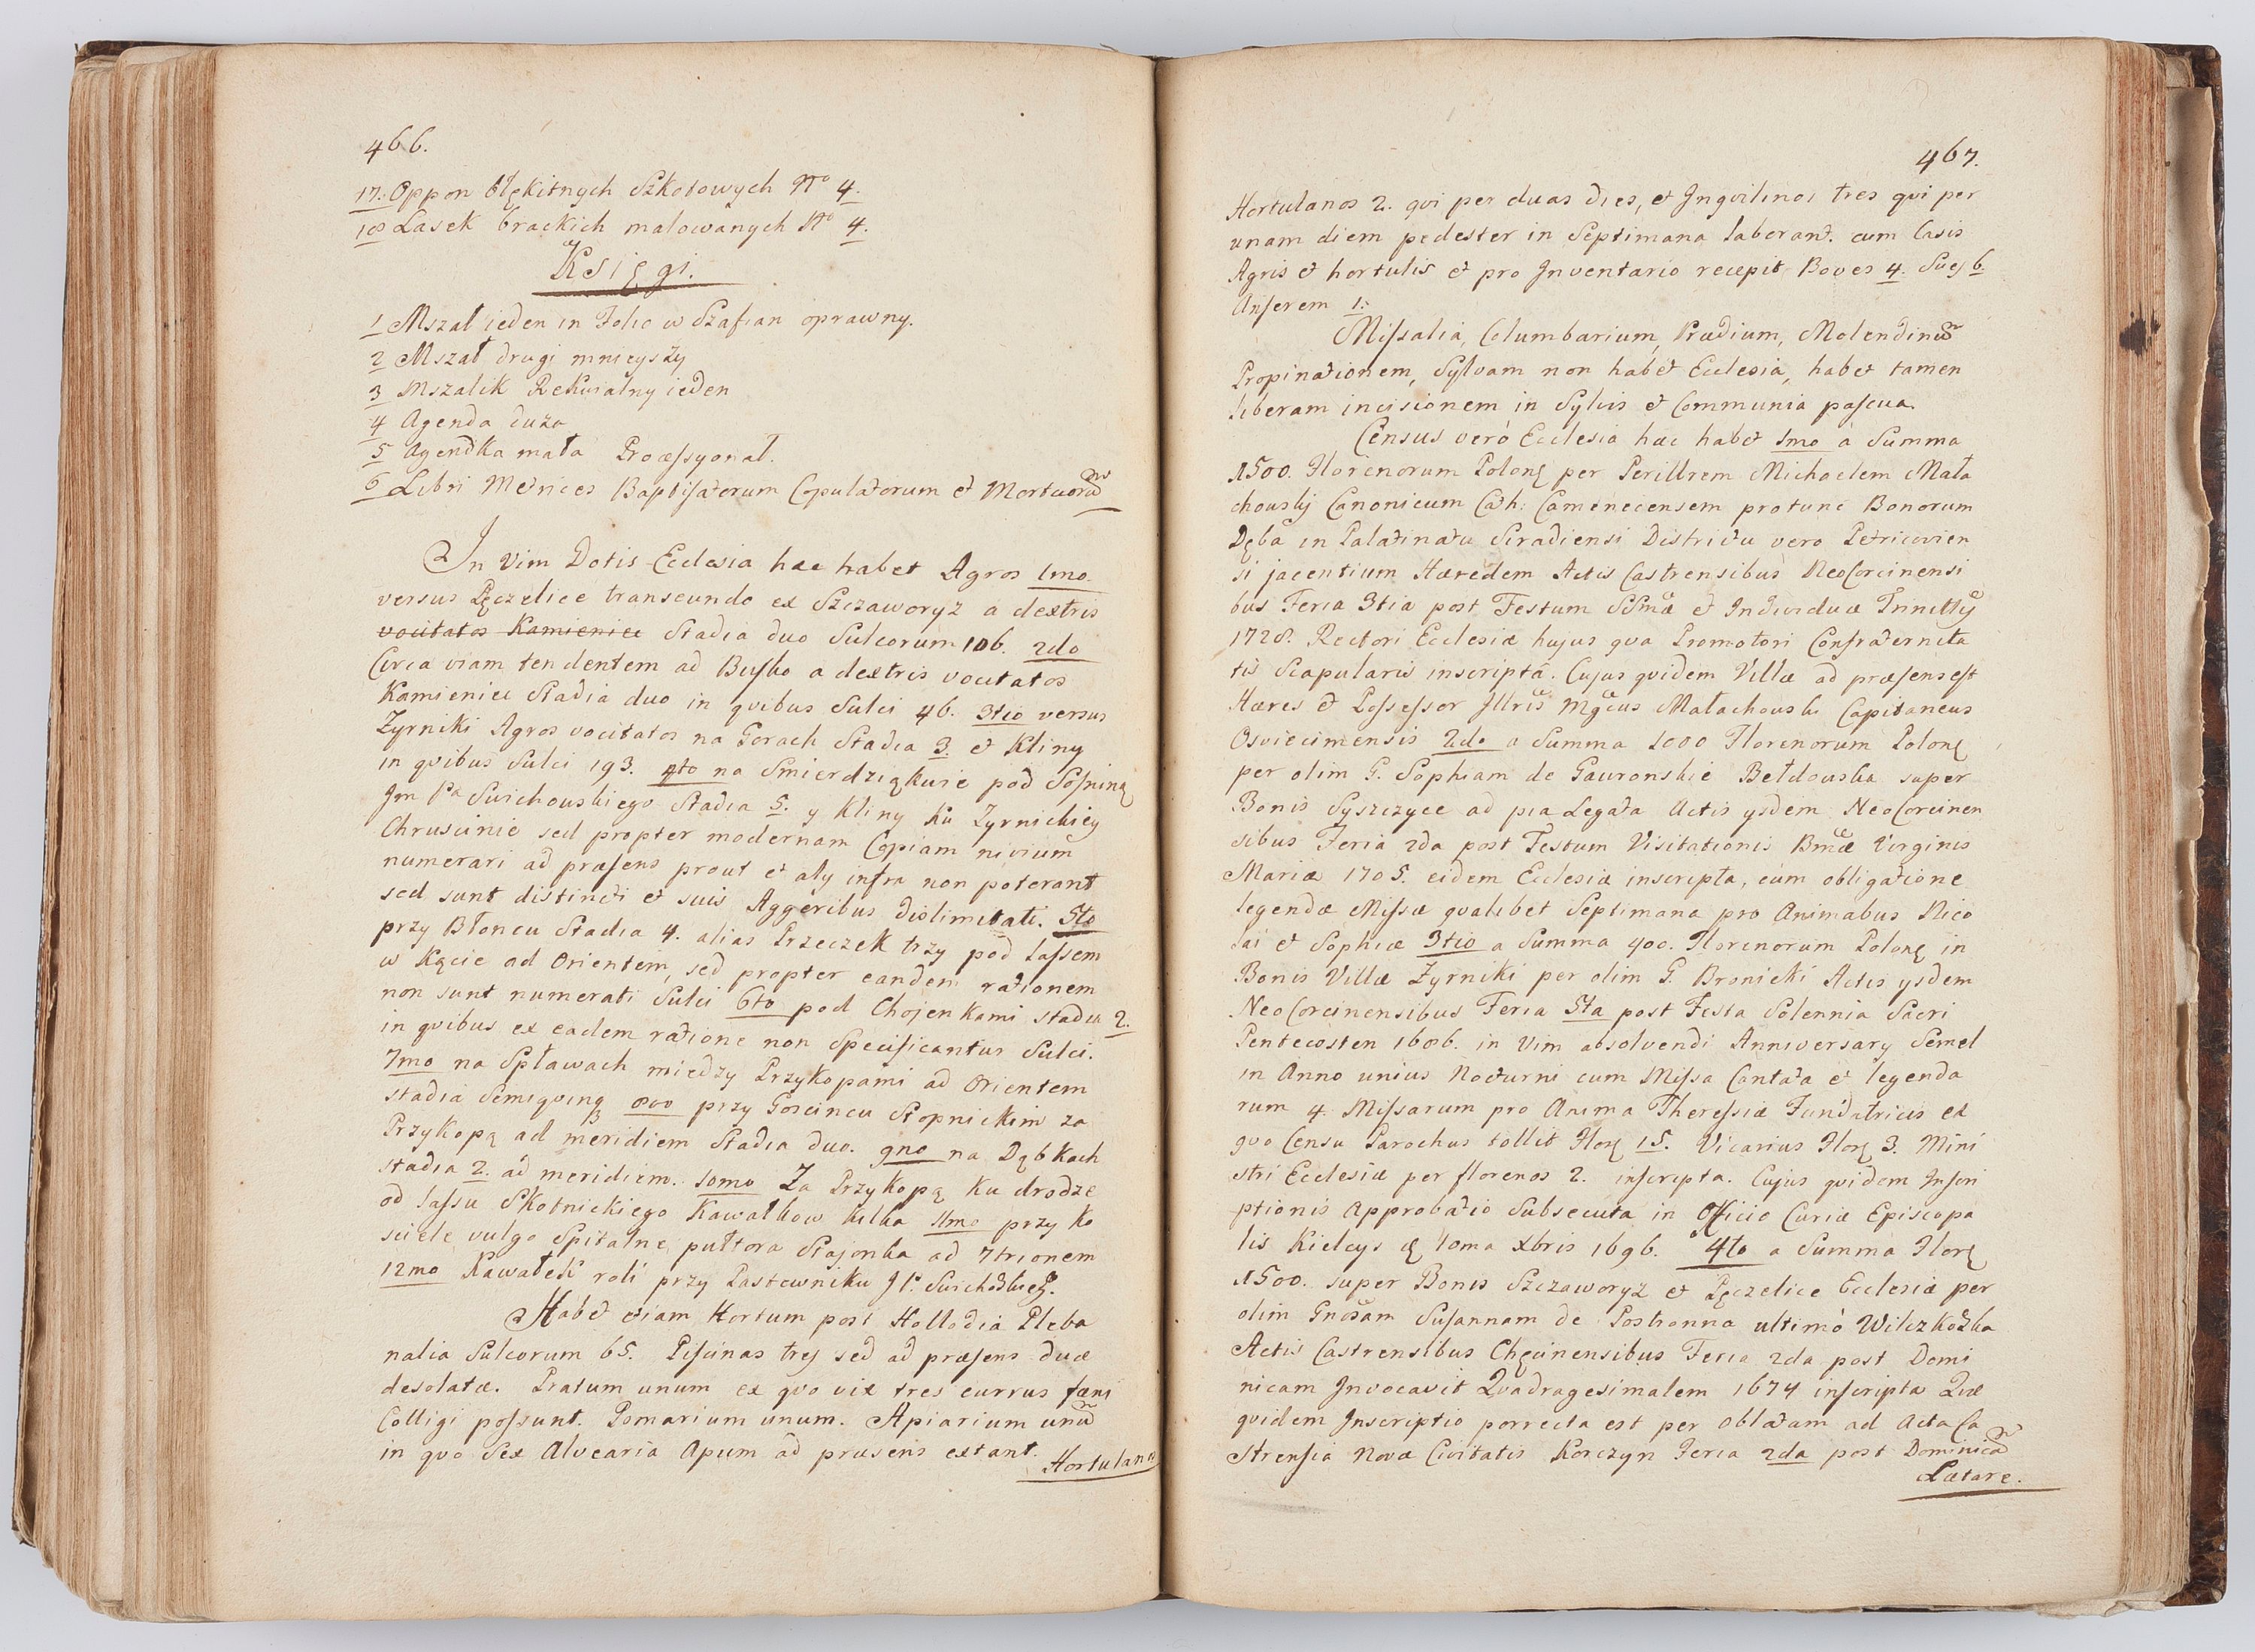 466.
17. Oppon błękitnych Szkotowych No 4.
18 Lasek brackich malowanych No 4.
Księgi.
1 Mszał ieden in Folio w Szafian oprawny.
2 Mszał drugi mnieyszy
3 Mszalik Rekwialny ieden
4 Agenda duża
5 Agendka mała Processyonał.
6 Libri Metrices Baptisatorum Copulatorum et Mortuorum
In Vim Dotis Ecclesia haec habet Agros 1mo.
versus Pęczelice transeundo ex Szczaworyż a dextris
vocitatos Kamieniec Stadia duo Sulcorum 106. 2do
Circa viam tendentem ad Busko a dextris vocitatos
Kamieniec Stadia duo in quibus Sulci 46. 3tio versus
Zyrniki Agros vocitatos na Gorach Stadia 3. et Kliny
in quibus Sulci 193. 4to na Smierdziąkuie pod Sosniną
Jm Pa Suichouskiego Stadia 5. y Kliny ku Zyrnickiey
Chruscinie sed propter modernam Copiam nivium
numerari ad præsens prout et aly infra non poterant
sed sunt distincti et suis Aggeribus dislimitati. 5to
przy Błoncu Stadia 4. alias Przeczek trzy pod Lassem
w Kącie ad Orientem, sed propter eandem rationem
non sunt numerati Sulci 6to pod Chojenkami stadia 2.
in quibus ex eadem ratione non Specificantur Sulci.
7mo na Spławach między Przykopami ad Orientem
stadia Semiquinq 8vo przy Goscincu Stopnickim za
Przykopą ad meridiem Stadia duo. 9no na Dąbkach
stadia 2. ad meridiem. 10mo Za Przykopą ku drodze
od Lassu Skotnickiego Kawałkow kilka 11mo przy Ko
sciele vulgo Spitalne pułtora Stajonka ad 7trionem
12mo Kawałek roli przy Pastewniku J P. Suichowskieg.
Habet etiam Hortum post Hallodia Pleba
nalia Sulcorum 65. Piscinas tres sed ad præsens duæ
desolatæ. Pratum unum ex quo vix tres currus fæni
Colligi possunt. Pomarium unum. Apiarium unum
in quo sex Alvearia Apum ad præsens extant.
Hortulanos
467.
Hortulanos 2. qvi per duas dies, et Inqvilinos tres qvi per
unam diem pedester in Septimana laborant. cum Casis
Agris et hortulis et pro Inventario recepit Boves 4. Sues 6.
Anserem 1.
Missalia, Columbarium, Prædium, Molendinum
Propinationem, Sylvam non habet Ecclesia, habet tamen
liberam incisionem in Sylvis et Communia pascua.
Census verò Ecclesia hæc habet 1mo à Summa
1500. Florenorum Polonę per Perillrem Michaelem Mała
chouskj Canonicum Cath: Camenecensem protunc Bonorum
Dęba in Palatinatu Siradiensi Districtu vero Petricovien
si jacentium Hæredem Actis Castrensibus NeoCorcinensi
bus Feria 3tia post Festum SSmæ et Individuæ Trinittis
1728. Rectori Ecclesiæ hujus qva Promotori Confraternita
tis Scapularis inscriptâ. Cujus qvidem Villæ ad præsens est
Hæres et Possessor Illris Mgcus Małachouski Capitaneus
Osviecimensis 2do a Summa 1000 Florenorum Polonę
per olim G. Sophiam de Gauronskie Bełdouska super
Bonis Syszczyce ad pia Legata Actis ysdem NeoCorcinen
sibus Feria 2da post Festum Visitationis Bmæ Virginis
Mariæ 1705. eidem Ecclesiæ inscripta, cum obligatione
legendæ Missæ qvalibet Septimana pro Animabus Nico
lai et Sophiæ 3tio a Summa 400. Florenorum Polonę in
Bonis Villæ Zyrniki per olim G. Bronicki Actis ysdem
NeoCorcinensibus Feria 5ta post Festa Solennia Sacri
Pentecosten 1686. in Vim absolvendi Anniversary Semel
in Anno unius Nocturni cum Missa Cantata et legenda
rum 4. Missarum pro Anima Theressiæ Fundatricis ex
qvo Censu Parochus tollit Florę 15. Vicarius Florę 3. Mini
stri Ecclesiæ per florenos 2. inscripta. Cujus qvidem Inscri
ptionis Approbatio Subsecuta in Officio Curiæ Episcopa
lis Kielcys 10ma Xbris 1696. 4to a Summa Florę
1500. super Bonis Szczaworyż et Pęczelice Ecclesiæ per
olim Gnosam Susannam de Postronna ultimò Wilczkowska
Actis Castrensibus Chęcinensibus Feria 2da post Domi
nicam Invocavit Qvadragesimalem 1674 inscripta Quæ
qvidem Inscriptio porrecta est per oblatam ad Acta Ca
strensia Novæ Civitatis Korczyn Feria 2da post Dominicam
Lætare.